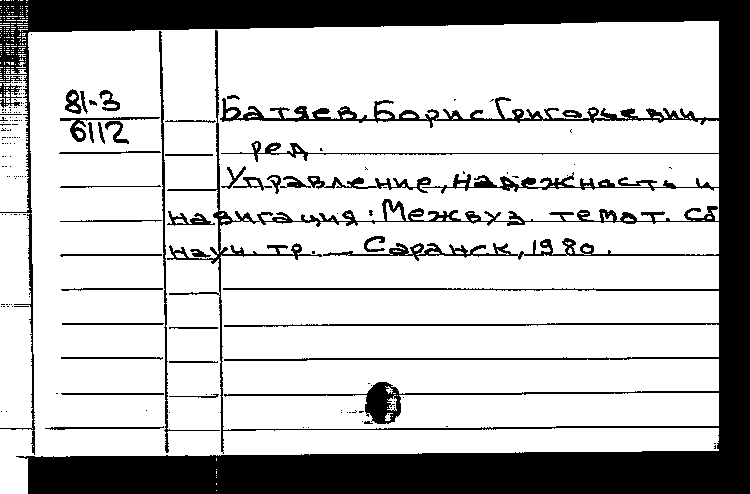 81-3
6112
Батяев, Борис Григорьевич,
ред.
Управление, надежность и
навигация: Межвуз. темат. сб
науч. тр. — Саранск, 1980.